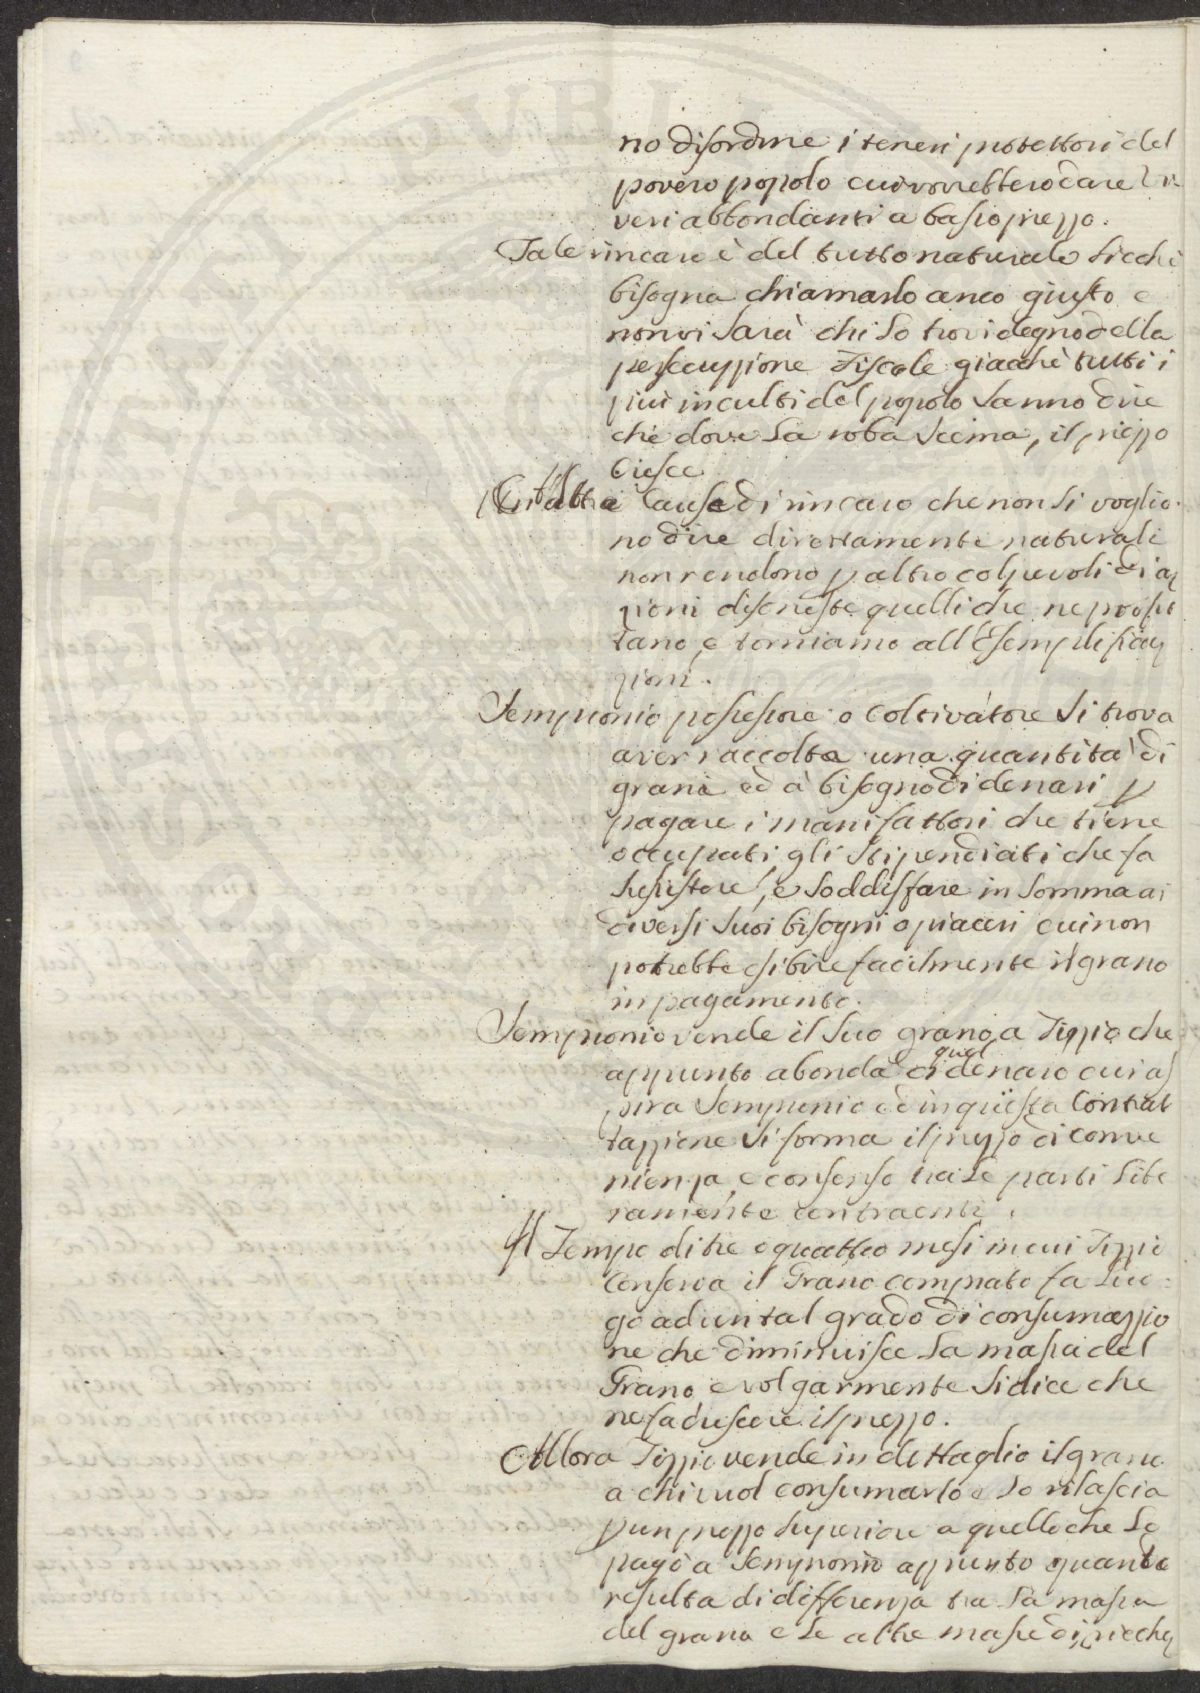 no disordine i teneri protettori del
povero popolo cui vorrebbero dare vi
veri abbondanti a basso prezzo.
Tale rincaro è del tutto naturale sicchè
bisogna chiamarlo anco giusto e
non vi sarà chi lo trovi degno della
persecuzzione Fiscale giacchè tutti i
piu inculti del popolo sanno dire
che dove la roba scema, il prezzo
cresce
altre cause di rincaro che non si voglio
no dire direttamente naturali
non rendono p altro colpevoli di az
zioni disoneste quelli che ne profit
tano, e torniamo all'Esemplificaz
zioni.
Sempronio possessore o coltivatore si trova
aver raccolta una quantità di
grani ed à bisogno di denari p
pagare i manifattori che tiene
occupati gli stipendiati che fa
sussistere, e soddisfare in somma ai
diversi suoi bisogni o piaceri cui non
potrebbe esibire facilmente il grano
in pagamento.
Sempronio vende il suo grano a Tizzio che
appunto abonda di quel denaro cui as
pira Sempronio ed in questa Contrat
tazzione si forma il prezzo di conve
nienza, e consenso tra le parti libe
ramente contraenti.
Il Tempo di tre o quattro mesi in cui Tizzio
Conserva il Grano comprato fa luo
go ad un tal grado di consumazzio
ne che diminuisce la massa del
Grano e volgarmente si dice che
ne fa crescere il prezzo.
Allora Tizzio vende in dettaglio il grano
a chi vuol consumarlo e lo rilascia
p un prezzo superiore a quello che lo
pagò a Sempronio appunto quanto
resulta di differenza tra la massa
del grano e le altre masse di ricchez